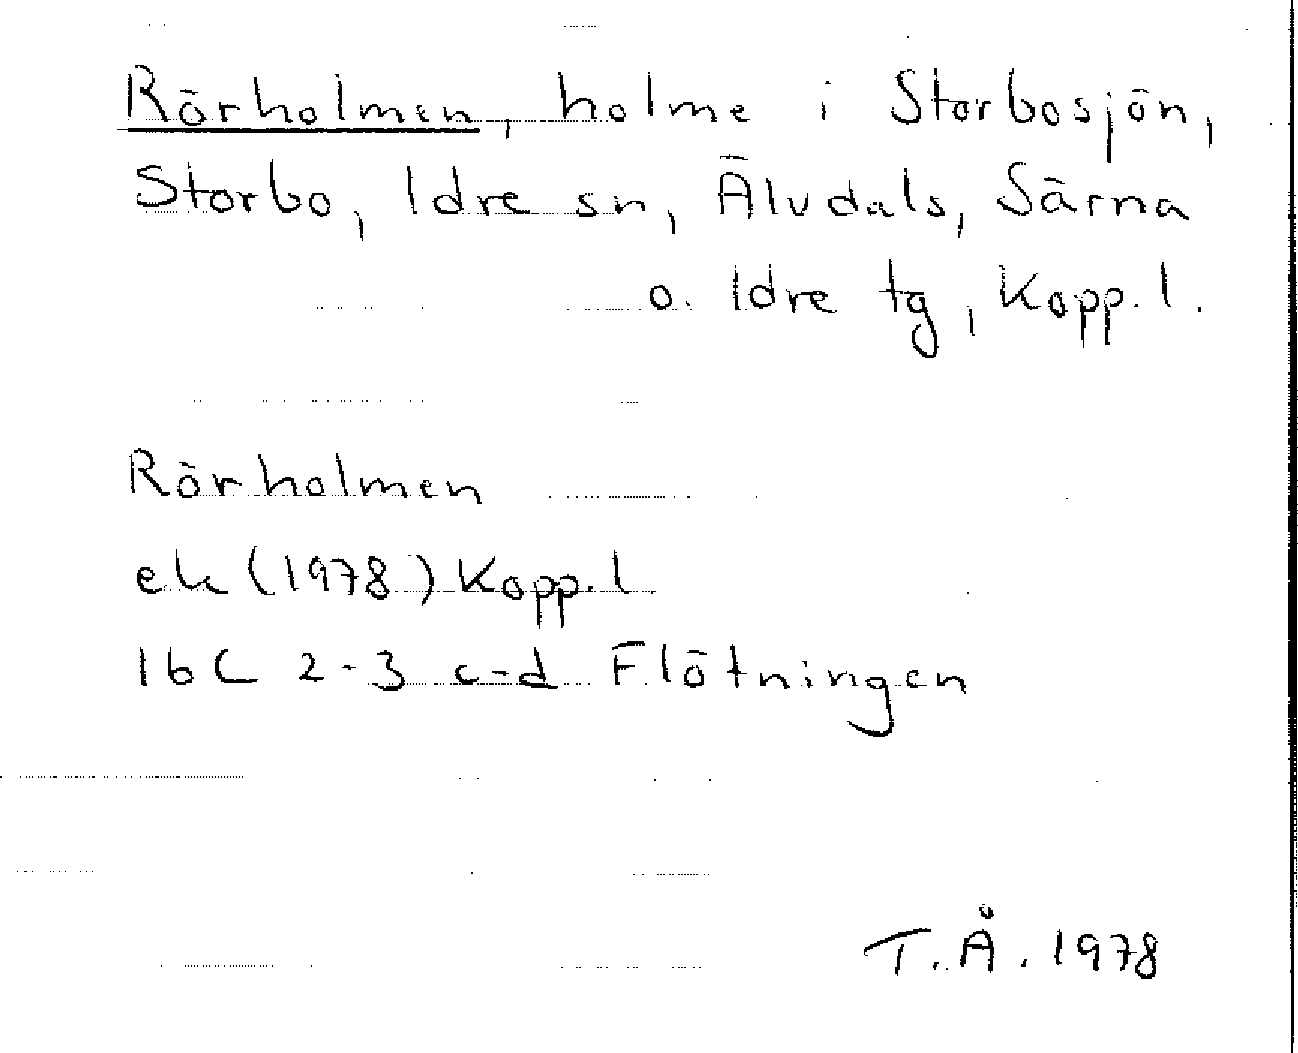 Rörholmen, holme i Storbosjön,
Storbo, Idre sn, Älvdals, Särna
o. Idre tg, Kopp. l.
Rörholmen
ek (1978) Kopp. l
16C 2-3 c-d Flötningen
T.Å. 1978